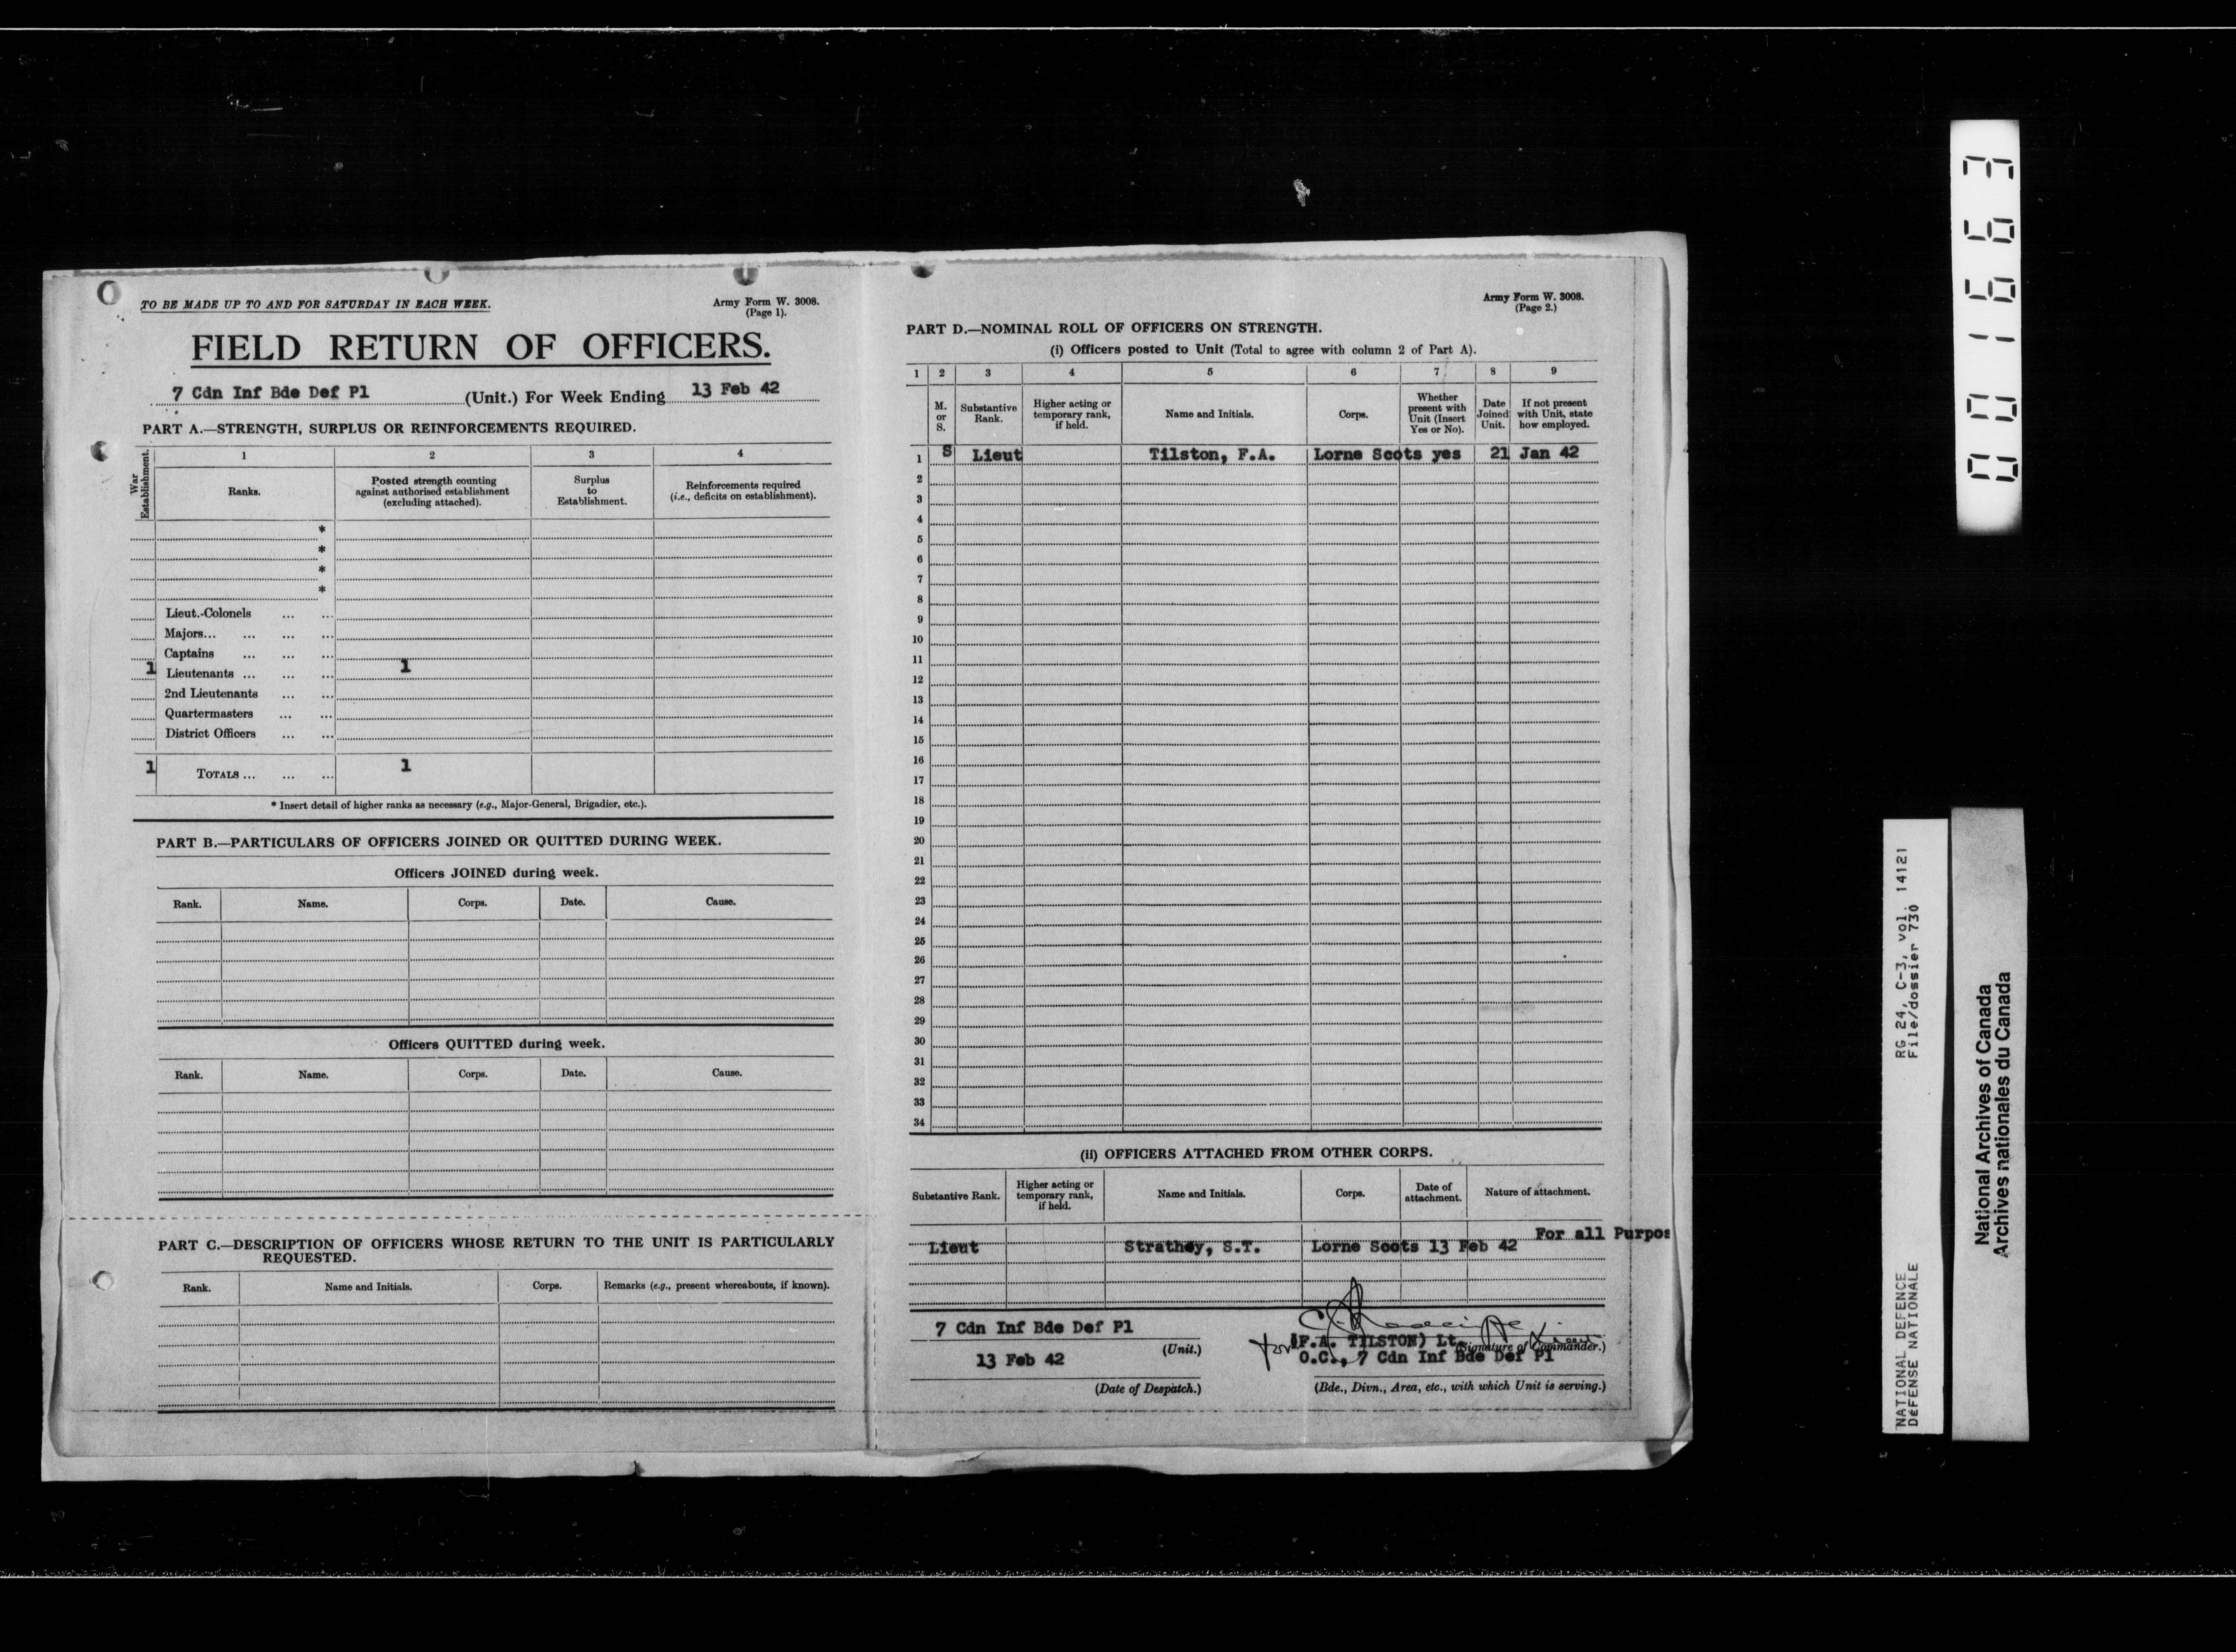 TO BE MADE UP TO AND FOR SATURDAY IN EACH WEEK.
Army Form W. 3008.
(Page 1).
FIELD RETURN OF OFFICERS.
7 Cdn Inf Bde Def Pl (Unit.) For Week Ending 13 Feb 42
PART A.—STRENGTH, SURPLUS OR REINFORCEMENTS REQUIRED.
War Establishment.
1 2 3 4
Ranks.
Posted strength counting against authorised establishment (excluding attached).
Surplus to Establishment.
Reinforcements required (i.e., deficits on establishment).
*
*
*
*
Lieut.-Colonels ... ...
Majors... ... ... ...
Captains ... ... ...
1 Lieutenants ... ... ... 1
2nd Lieutenants ... ...
Quartermasters ... ...
District Officers ... ...
1 TOTALS ... ... ... 1
* Insert detail of higher ranks as necessary (e.g., Major-General, Brigadier, etc.).
PART B.—PARTICULARS OF OFFICERS JOINED OR QUITTED DURING WEEK.
Officers JOINED during week.
Rank. Name. Corps. Date. Cause.
Officers QUITTED during week.
Rank. Name. Corps. Date. Cause.
PART C.—DESCRIPTION OF OFFICERS WHOSE RETURN TO THE UNIT IS PARTICULARLY
REQUESTED.
Rank. Name and Initials. Corps. Remarks (e.g., present whereabouts, if known).
Army Form W. 3008.
(Page 2.)
PART D.—NOMINAL ROLL OF OFFICERS ON STRENGTH.
(i) Officers posted to Unit (Total to agree with column 2 of Part A).
1 2 3 4 5 6 7 8 9
M. or S.
Substantive Rank.
Higher acting or temporary rank, if held.
Name and Initials.
Corps.
Whether present with Unit (Insert Yes or No).
Date Joined Unit.
If not present with Unit, state how employed.
1 S Lieut Tilston, F.A. Lorne Scots yes 21 Jan 42
2
3
4
5
6
7
8
9
10
11
12
13
14
15
16
17
18
19
20
21
22
23
24
25
26
27
28
29
30
31
32
33
34
(ii) OFFICERS ATTACHED FROM OTHER CORPS.
Substantive Rank.
Higher acting or temporary rank, if held.
Name and Initials.
Corps.
Date of attachment.
Nature of attachment.
For all Purpos
Lieut Strathey, S.T. Lorne Scots 13 Feb 42
7 Cdn Inf Bde Def Pl
(Unit.)
13 Feb 42
(Date of Despatch.)
for (F.A. TILSTON) Lt.
(Signature of Commander.)
O.C., 7 Cdn Inf Bde Def Pl
(Bde., Divn., Area, etc., with which Unit is serving.)
00 1663
NATIONAL DEFENCE RG 24, C-3, vol. 14121
DÉFENSE NATIONALE File/dossier 730
National Archives of Canada
Archives nationales du Canada